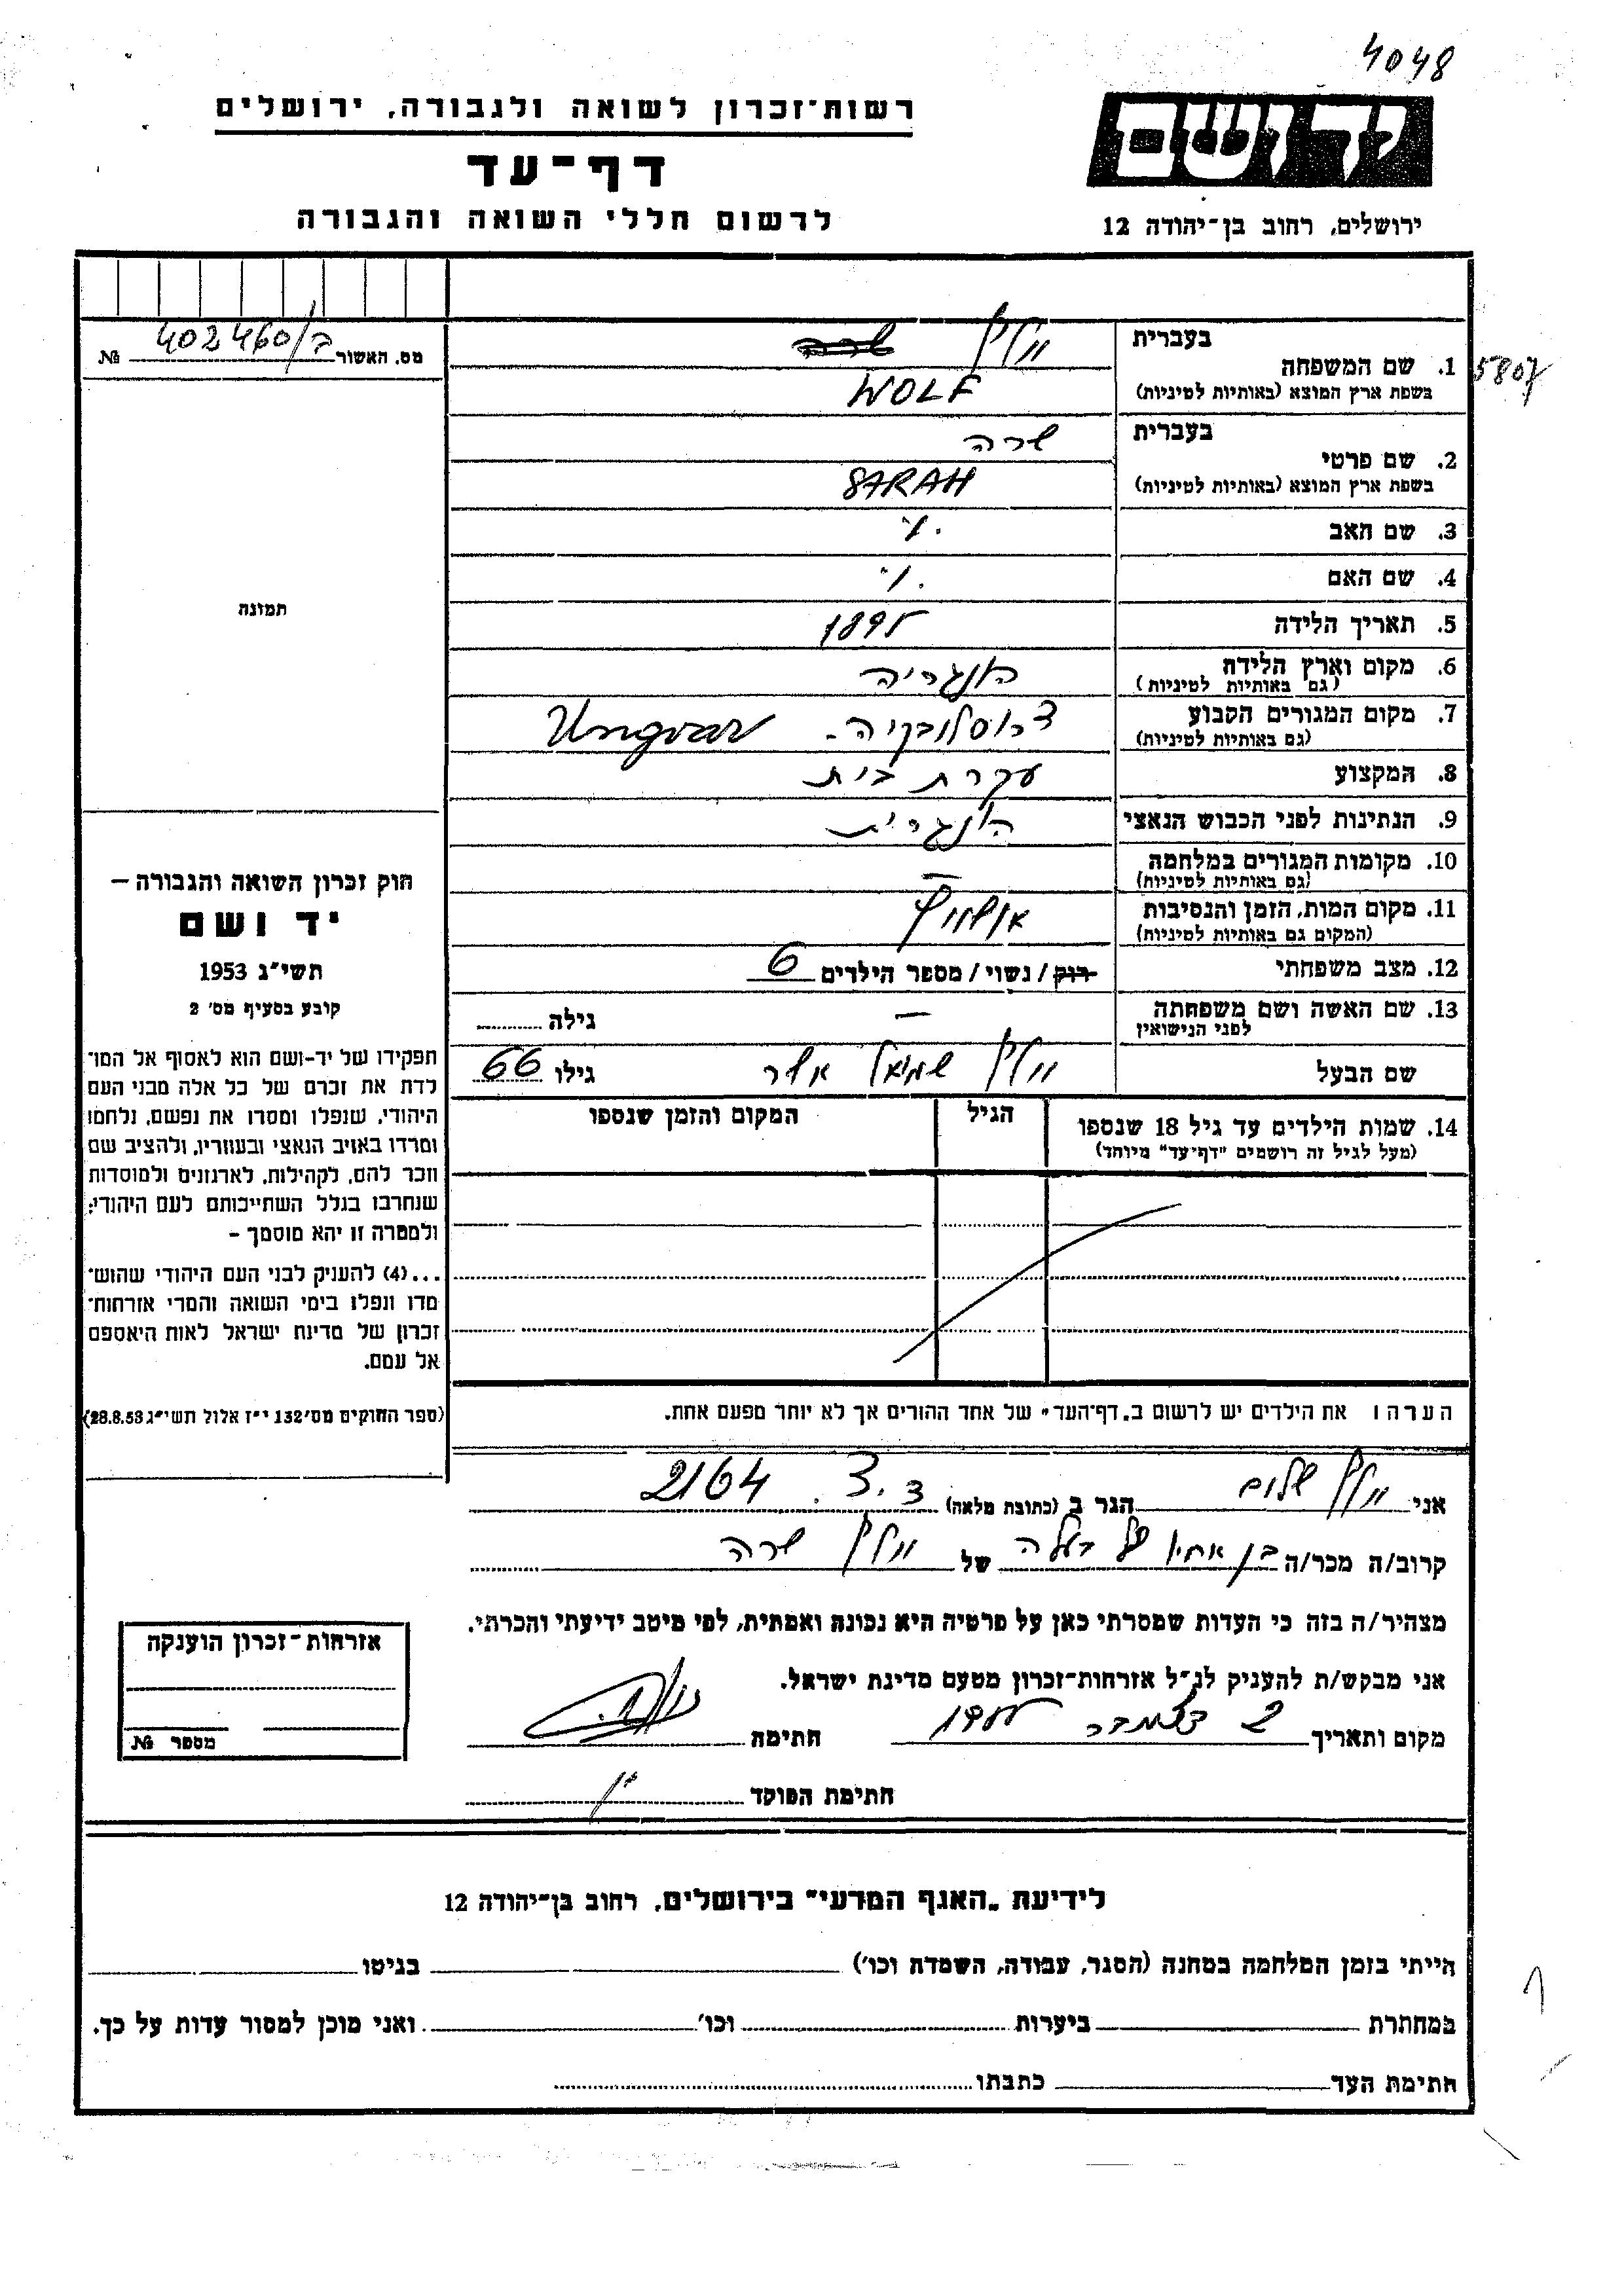 4048
יד ושם
ירושלים, רחוב בן-יהודה 12
רשות-זכרון לשואה ולגבורה, ירושלים
דף-עד
לרשום חללי השואה והגבורה
מס. האשור 402460/ב №
תמונה
חוק זכרון השואה והגבורה –
יד ושם
תשי"ג 1953
קובע בסעיף מס' 2
תפקידו של יד-ושם הוא לאסוף אל המו-
לדת את זכרם של כל אלה מבני העם
היהודי, שנפלו ומסרו את נפשם, נלחמו
ומרדו באויב הנאצי ובעוזריו, ולהציב שם
וזכר להם, לקהילות, לארגונים ולמוסדות
שנחרבו בגלל השתייכותם לעם היהודי;
ולמטרה זו יהא מוסמך –
...(4) להעניק לבני העם היהודי שהוש-
מדו ונפלו בימי השואה והמרי אזרחות-
זכרון של מדינת ישראל לאות היאספם
אל עמם.
(ספר החוקים מס' 132 י"ז אלול תשי"ג 28.8.53)
5807
בעברית וולף שרה
1. שם המשפחה
בשפת ארץ המוצא (באותיות לטיניות) WOLF
בעברית שרה
2. שם פרטי
בשפת ארץ המוצא (באותיות לטיניות) SARAH
3. שם האב
4. שם האם
5. תאריך הלידה 1895
6. מקום וארץ הלידה הונגריה
(גם באותיות לטיניות)
7. מקום המגורים הקבוע צ'כוסלובקיה - Ungvar
(גם באותיות לטיניות)
8. המקצוע עקרת בית
9. הנתינות לפני הכבוש הנאצי הונגרית
10. מקומות המגורים במלחמה –
(גם באותיות לטיניות)
11. מקום המות, הזמן והנסיבות אושוויץ
(המקום גם באותיות לטיניות)
12. מצב משפחתי רוק / נשוי / מספר הילדים 6
13. שם האשה ושם משפחתה – גילה
לפני הנישואין
שם הבעל וולף שמואל אשר גילו 66
14. שמות הילדים עד גיל 18 שנספו הגיל המקום והזמן שנספו
(מעל לגיל זה רושמים "דף-עד" מיוחד)
הערה: את הילדים יש לרשום ב„דף-העד" של אחד ההורים אך לא יותר מפעם אחת.
אני וולף שלום הגר ב (כתובת מלאה) צ.צ. 2164
קרוב/ה מכר/ה בן אחיו של בעלה של וולף שרה
מצהיר/ה בזה כי העדות שמסרתי כאן על פרטיה היא נכונה ואמתית, לפי מיטב ידיעתי והכרתי.
אני מבקש/ת להעניק לנ"ל אזרחות-זכרון מטעם מדינת ישראל.
מקום ותאריך 2 דצמבר חתימה
חתימת הפוקד
אזרחות-זכרון הוענקה
מספר №
לידיעת „האגף המדעי" בירושלים, רחוב בן-יהודה 12
הייתי בזמן המלחמה במחנה (הסגר, עבודה, השמדה וכו') בגיטו
במחתרת ביערות וכו' ואני מוכן למסור עדות על כך.
חתימת העד כתבתו